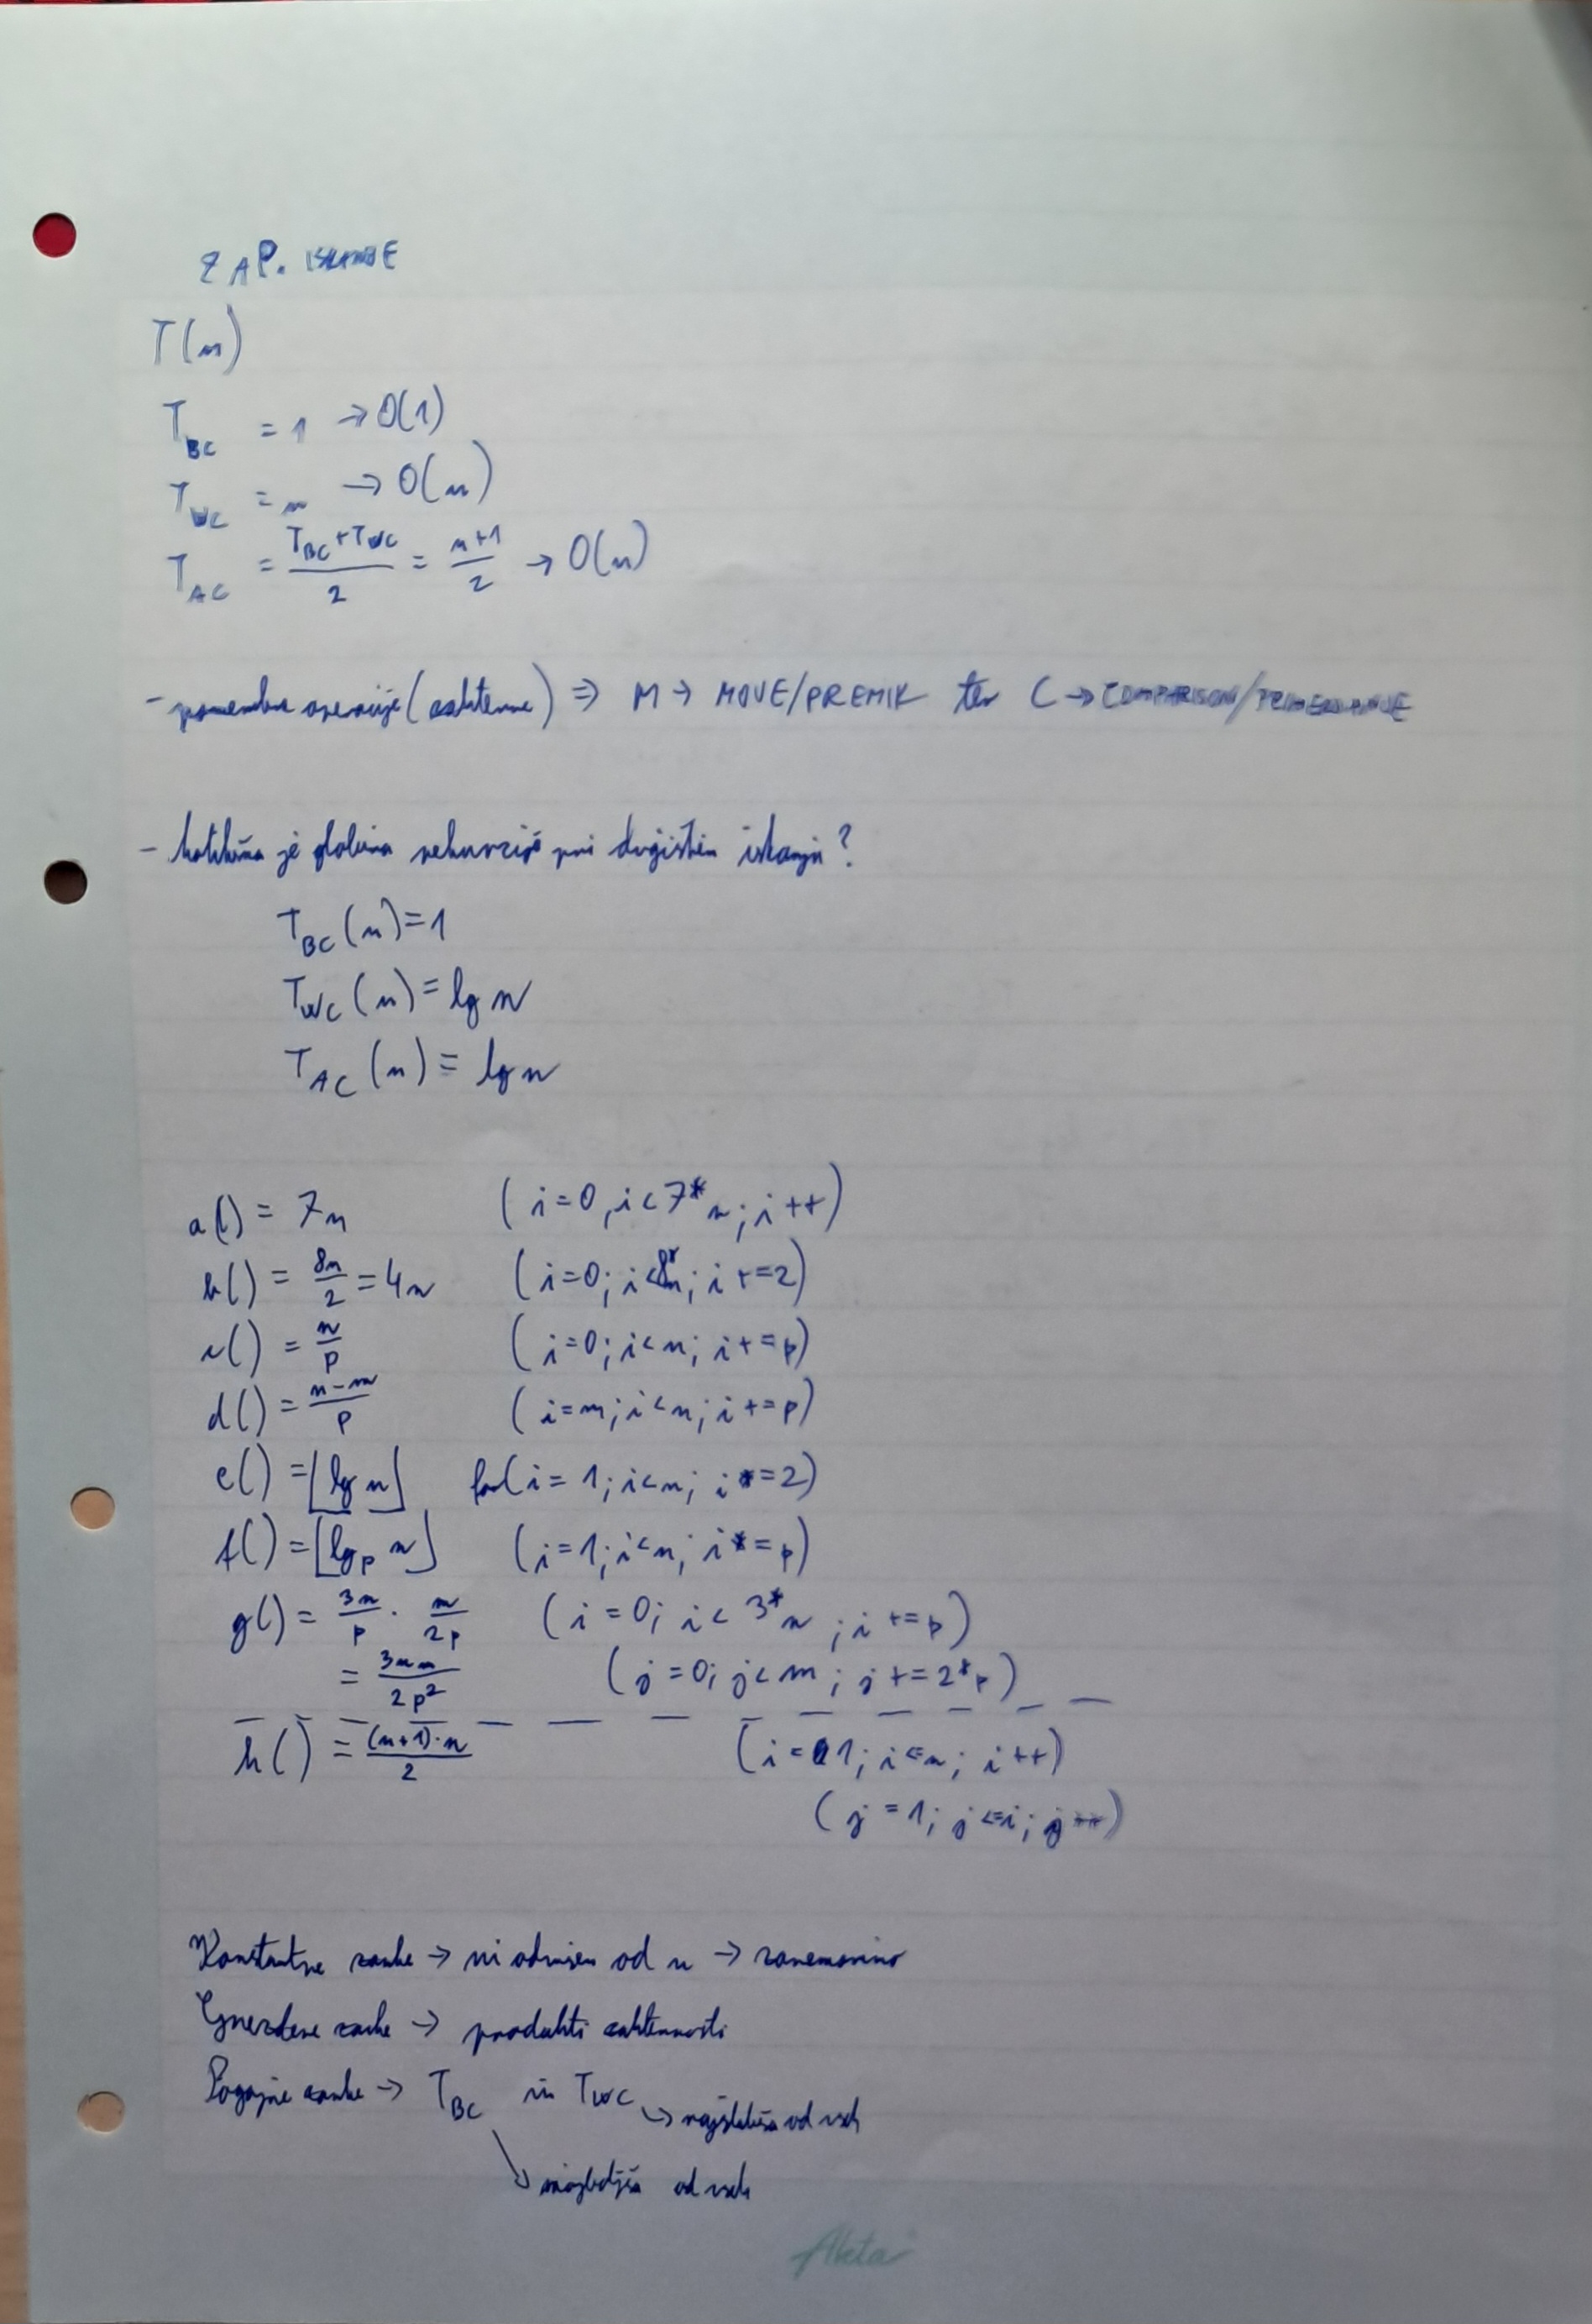 ZAP. ISKANJE
T(n)
T_BC = 1 → O(1)
T_WC = n → O(n)
T_AC = (T_BC+T_WC)/2 = (n+1)/2 → O(n)
- pomembne operacije (zahtevne) ⇒ M → MOVE/PREMIK ter C → COMPARISON/PRIMERJANJE
- kolikšna je globina rekurzije pri dvojiškem iskanju?
T_BC(n)=1
T_WC(n)=lg n
T_AC(n)=lg n
a() = 7n (i=0, i<7*n; i++)
b() = 8n/2 = 4n (i=0; i<8*n; i+=2)
c() = n/p (i=0; i<n; i+=p)
d() = (n-m)/p (i=m; i<n; i+=p)
e() = ⌊lg n⌋ for(i=1; i<n; i*=2)
f() = ⌊lg_p n⌋ (i=1; i<n; i*=p)
g() = 3n/p · m/2p (i=0; i<3*n; i+=p)
= 3nm/2p² (j=0; j<m; j+=2*p)
h() = (n+1)·n/2 (i=1; i<=n; i++)
(j=1; j<=i; j++)
Konstantne zanke → ni odvisen od n → zanemarimo
Gnezdene zanke → produkti zahtevnosti
Pogojne zanke → T_BC in T_WC → najslabša od vseh
najboljša od vseh
Akta